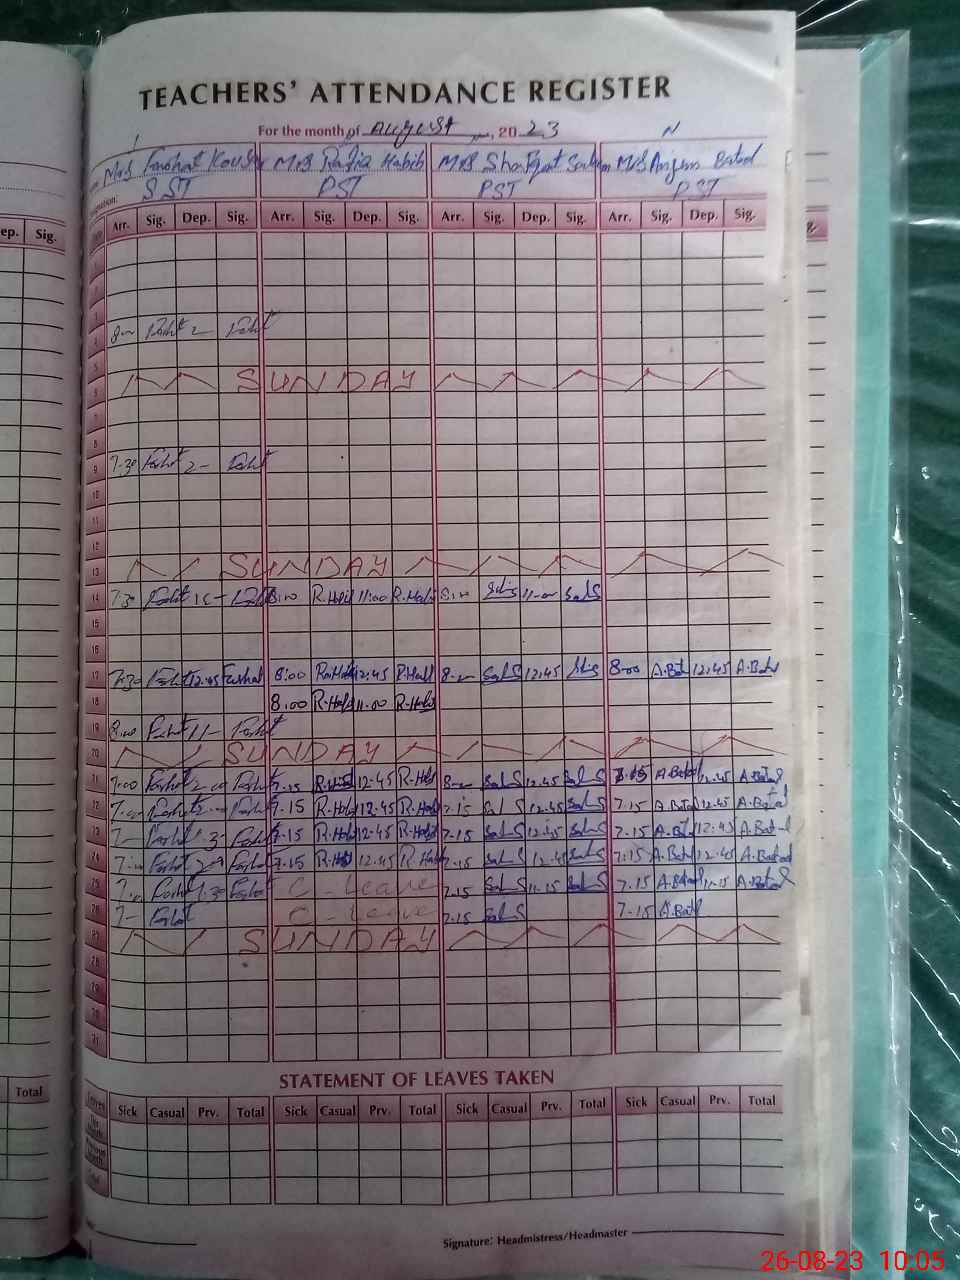 TEACHERS' ATTENDANCE REGISTER
For the month of August, 2023
Mrs Farhat Kousar Mrs Razia Habib Mrs Shafqat Mrs Anjum Batool
SST PST PST PST
ep. Sig. Arr. Sig. Dep. Sig. Arr. Sig. Dep. Sig. Arr. Sig. Dep. Sig. Arr. Sig. Dep. Sig.
4 8- Farht 2- Farht
6 SUNDAY
8
9 7.30 Farht 2- Farht
10
11
12
13 SUNDAY
14 7.30 Farht Farht 8:00 R.Habib 11:00 R.Habib 8:00 11-00 SalS
15
16
17 7:30 Farht 12:45 Farhat 8:00 R.Habib 12:45 R.Habib 8- SalS 12:45 8:00 A.Batol 12:45 A.Batol
18 8.00 R.Habib 11.00 R.Habib
19 8:00 Farht 11- Farht
20 SUNDAY
21 7:00 Farhat 2-00 Farht 7.15 R.Habib 12.45 R.Habib 8- SalS 12.45 SalS 7.15 A.Batool 12.45 A.Batool
22 7- Farhat 2- Farht 7.15 R.Habib 12.45 R.Habib 7.15 SalS 12.45 SalS 7.15 A.Batol 12.45 A.Batool
23 7- Farhat 1.3- Farht 7.15 R.Habib 12.45 R.Habib 7.15 SalS 12.45 SalS 7.15 A.Batol 12:45 A.Batol
24 7:- Farhat 2- Farht 7.15 R.Habib 12.45 R.Habib 7.15 SalS 12.45 SalS 7.15 A.Batol 12.45 A.Batool
25 7- Farhat 1.30 Farhat C-Leave 7.15 SalS 11.15 SalS 7.15 A.Batool 11-15 A.Batool
26 7- Farhat C-Leave 7.15 SalS 7-15 A.Batl
27 SUNDAY
28
29
30
31
STATEMENT OF LEAVES TAKEN
Total Leaves Sick Casual Prv. Total Sick Casual Prv. Total Sick Casual Prv. Total Sick Casual Prv. Total
Total
Signature: Headmistress/Headmaster
26-08-23 10:05